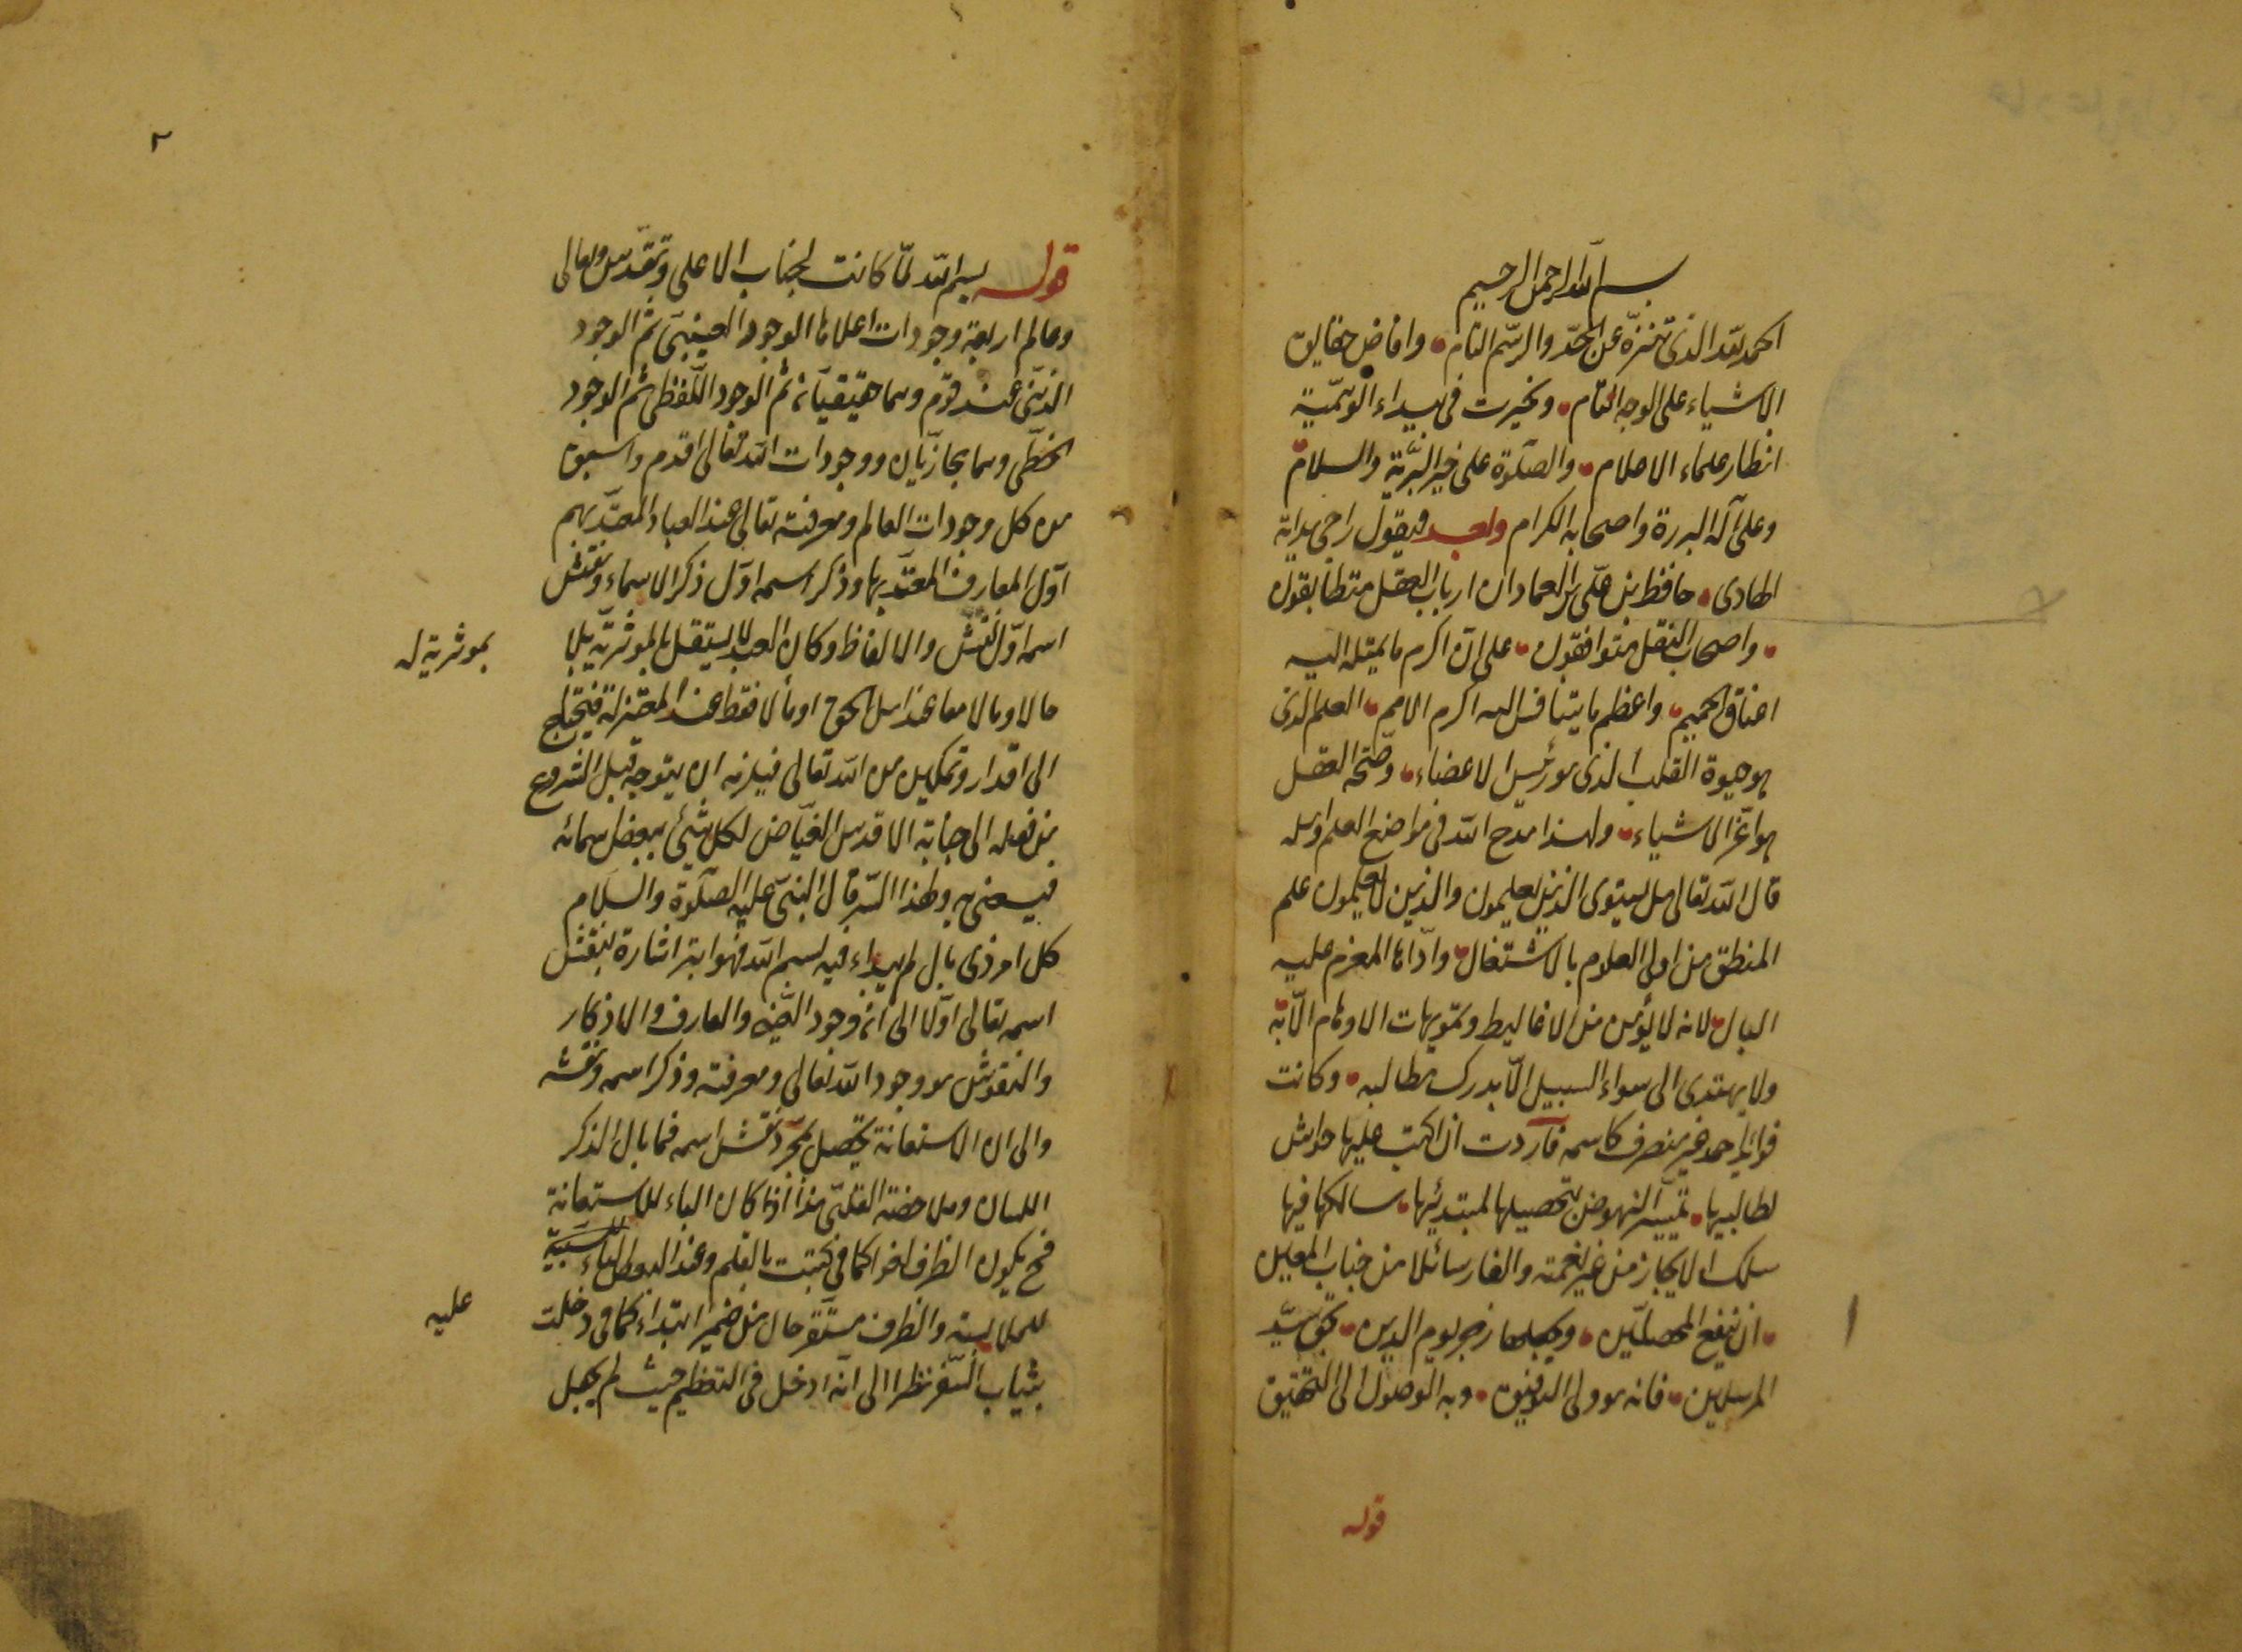 بسم الله الرحمن الرحيم
الحمد لله الذى تنزه عن الحدّ والرّسم التام وافاض حقايق
الاشياء على الوجه التام وتحيرت فى بيداء الوهميّة
انظار علماء الاعلام والصّلوة على خير البريّة والسلام
وعلى آله البررة واصحابه الكرام وبعد فيقول راجى هداية
الهادى حافظ بن على بن العمادى ان ارباب العقل متطابقون
واصحاب النقل متوافقون على ان اكرم ما يميل اليه
اعناق الهمم واعظم ما يتنافس اليه اكرم الامم العلم الذى
هو حيوة القلب الذى هو رئيس الاعضاء وصحة العقل
هو اعزّ الاشياء ولهذا مدح الله فى مواضع العلم واهله
قال الله تعالى هل يستوى الذين يعلمون والذين لا يعلمون علم
المنطق من اولى العلوم بالاشتغال المعزم عليه
البال لانه لا يؤمن من الاغاليط وتمويهات الاوهام الّا به
ولا يهتدى الى سواء السبيل الّا بدرك مطالبه وكانت
فوائد احمد غير منصرف كاسمه فاردت ان اكتب عليها حواش
لطالبيها تيسّر النهوض لتحصيلها لمبتديها سالكها فيها
سلك الايجاز من غير والغاز سائلا من جناب المعين
ان ينفع المحصلين ويجعلها ليوم الدين بحق سيّد
المرسلين فانه هو ولى التوفيق وبه الوصول الى التحقيق
قوله
٢
قوله بسم الله لمّا كانت لجناب الاعلى وتقدّس وتعالى
وعالم اربعة وجودات اعلاها الوجود العينىّ ثم الوجود
الذهنى عند قوم وهما حقيقيّان ثم الوجود اللّفظى ثم الوجود
الخطّى وهما مجازيّان ووجودات الله تعالى اقدم واسبق
من كل وجودات العالم ومعرفته تعالى عند العباد المعتدّ بهم
اوّل المعارف المعتدّ بها وذكر اسمه اوّل ذكر الاسماء ونقش
اسمه اوّل نقش والالفاظ وكان العبد لا يستقل بالموثريّة بلا
بموثرية له
حالا ومالا معا عند اهل الحق او مالا فقط عند المعتزلة فيحتاج
الى اقدار وتمكين من الله تعالى فيلزمه ان يتوجه قبل الشروع
من فعله الى جنابه الاقدس الفيّاض لكل شيئ ببعض سمائه
فيستعين به ولهذا السّر قال النبىّ عليه الصّلوة والسلام
كل امر ذى بال لم يبداء فيه بسم الله فهو ابتر اشارة بنقش
اسمه تعالى اوّلا الى ان وجود والمعارف والاذكار
والنقوش هو وجود الله تعالى ومعرفته وذكر اسمه ونقشه
والى ان الاستعانة تحصل بمجرّد نقش اسمه فما بال الذكر
اللسان وملاحضة القلبى هذا اذا كان الباء للاستعانة
فح يكون الظرف لغوا كما فى كتبت بالقلم وعند البعض الباء للسببيّة
للملابسة والظرف مستقر حال من ضمير ابتداء كما فى دخلت
عليه
بثياب السّفر نظرا الى انه ادخل فى التعظيم حيث لم يجعل